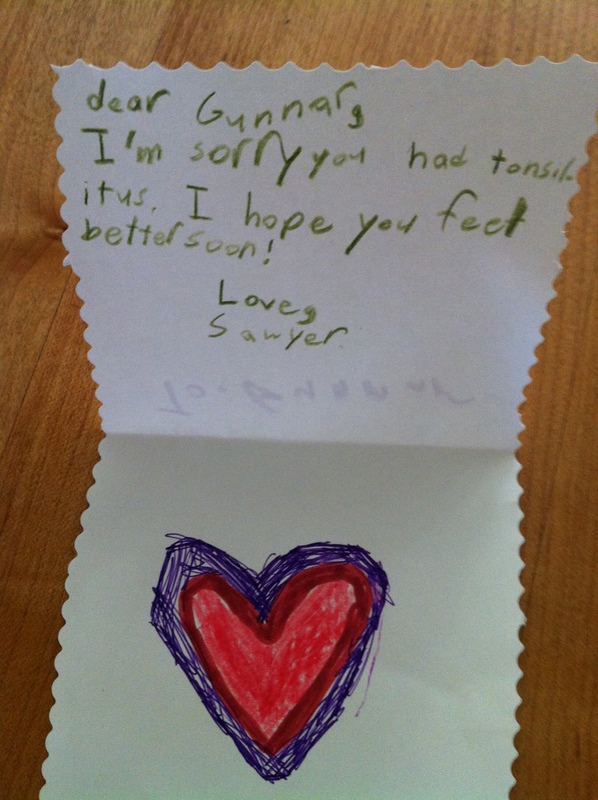 dear Gunnar,
I'm sorry you had tonsil-
itus. I hope you feel
better soon!
Love,
Sawyer.
To: Gunnar